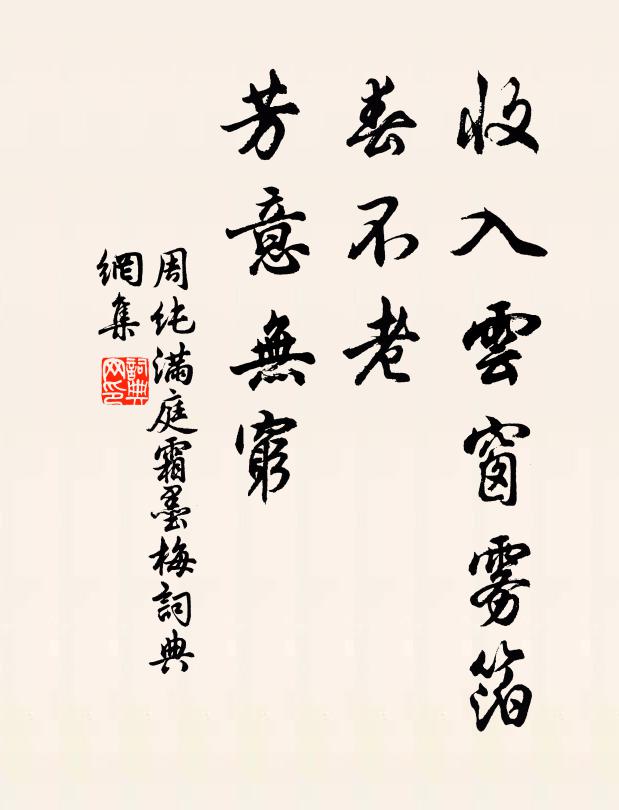 收入雲窗雾箔
春不老
芳意無窮
周纯滿庭霜墨梅詞典
網集
詞典
网印